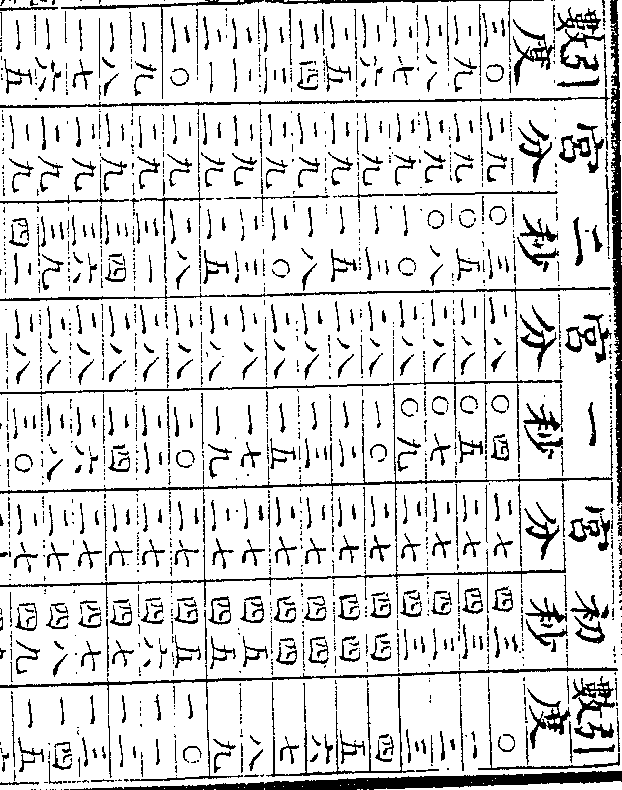 引數 宮二 宮一 宮初 引數
度 分 秒 分 秒 分 秒 度
三〇 二九 〇三 二八 〇四 二七 四三 〇
二九 二九 〇五 二八 〇五 二七 四三 一
二八 二九 〇八 二八 〇七 二七 四三 二
二七 二九 一〇 二八 〇九 二七 四三 三
二六 二九 一三 二八 一〇 二七 四四 四
二五 二九 一五 二八 一二 二七 四四 五
二四 二九 一八 二八 一三 二七 四四 六
二三 二九 二〇 二八 一五 二七 四四 七
二二 二九 二三 二八 一七 二七 四五 八
二一 二九 二五 二八 一九 二七 四五 九
二〇 二九 二八 二八 二〇 二七 四五 一〇
一九 二九 三一 二八 二二 二七 四六 一一
一八 二九 三四 二八 二四 二七 四七 一二
一七 二九 三六 二八 二六 二七 四七 一三
一六 二九 三九 二八 二八 二七 四八 一四
一五 二九 四二 二八 三〇 二七 四九 一五